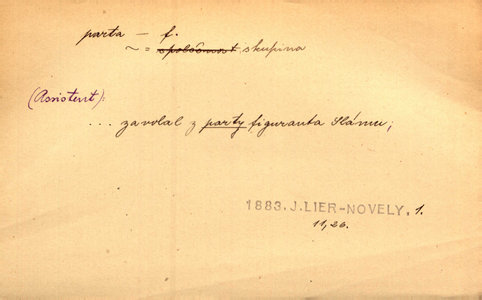 parta — f.
~ = společnost skupina
(Assistent):
... zavolal z party figuranta Slámu;
1883. J. LIER-NOVELY, 1.
11, 26.